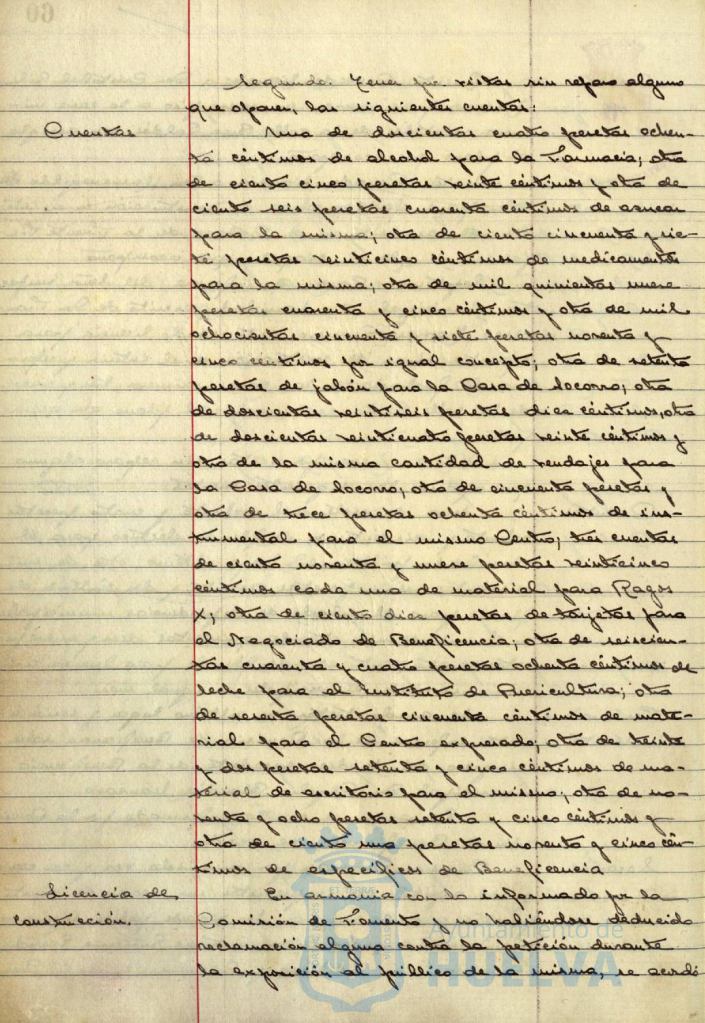 Segundo. Tener por vistas sin reparo alguno
que oponer, las siguientes cuentas:
Cuentas
Una de doscientas cuatro pesetas ochen-
ta céntimos de alcohol para la Farmacia; otra
de ciento cinco pesetas veinte céntimos y otra de
ciento seis pesetas cuarenta céntimos de azucar
para la misma; otra de ciento cincuenta y sie-
te pesetas veinticinco céntimos de medicamentos
para la misma; otra de mil quinientas nueve
pesetas cuarenta y cinco céntimos y otra de mil
ochocientas cincuenta y siete pesetas noventa y
cinco céntimos por igual concepto; otra de setenta
pesetas de jabón para la Casa de Socorro; otra
de doscientas veintiseis pesetas diez céntimos, otra
de doscientas veinticuatro pesetas veinte céntimos y
otra de la misma cantidad de vendajes para
la Casa de Socorro; otra de cincuenta pesetas y
otra de trece pesetas ochenta céntimos de ins-
trumental para el mismo Centro; tres cuentas
de ciento noventa y nueve pesetas veinticinco
céntimos cada una de material para Rayos
X; otra de ciento diez pesetas de tarjetas para
el Negociado de Beneficencia; otra de seiscien-
tas cuarenta y cuatro pesetas ochenta céntimos de
leche para el Instituto de Puericultura; otra
de sesenta pesetas cincuenta céntimos de mate-
rial para el Centro expresado; otra de treinta
y dos pesetas setenta y cinco céntimos de ma-
terial de escritorio para el mismo; otra de no-
venta y ocho pesetas setenta y cinco céntimos y
otra de ciento una pesetas noventa y cinco cén-
timos de específicos de Beneficencia
Licencia de
construcción.
En armonía con lo informado por la
Comisión de Fomento y no habiéndose deducido
reclamación alguna contra la petición durante
la exposición al público de la misma, se acordó
Ayuntamiento de
HUELVA